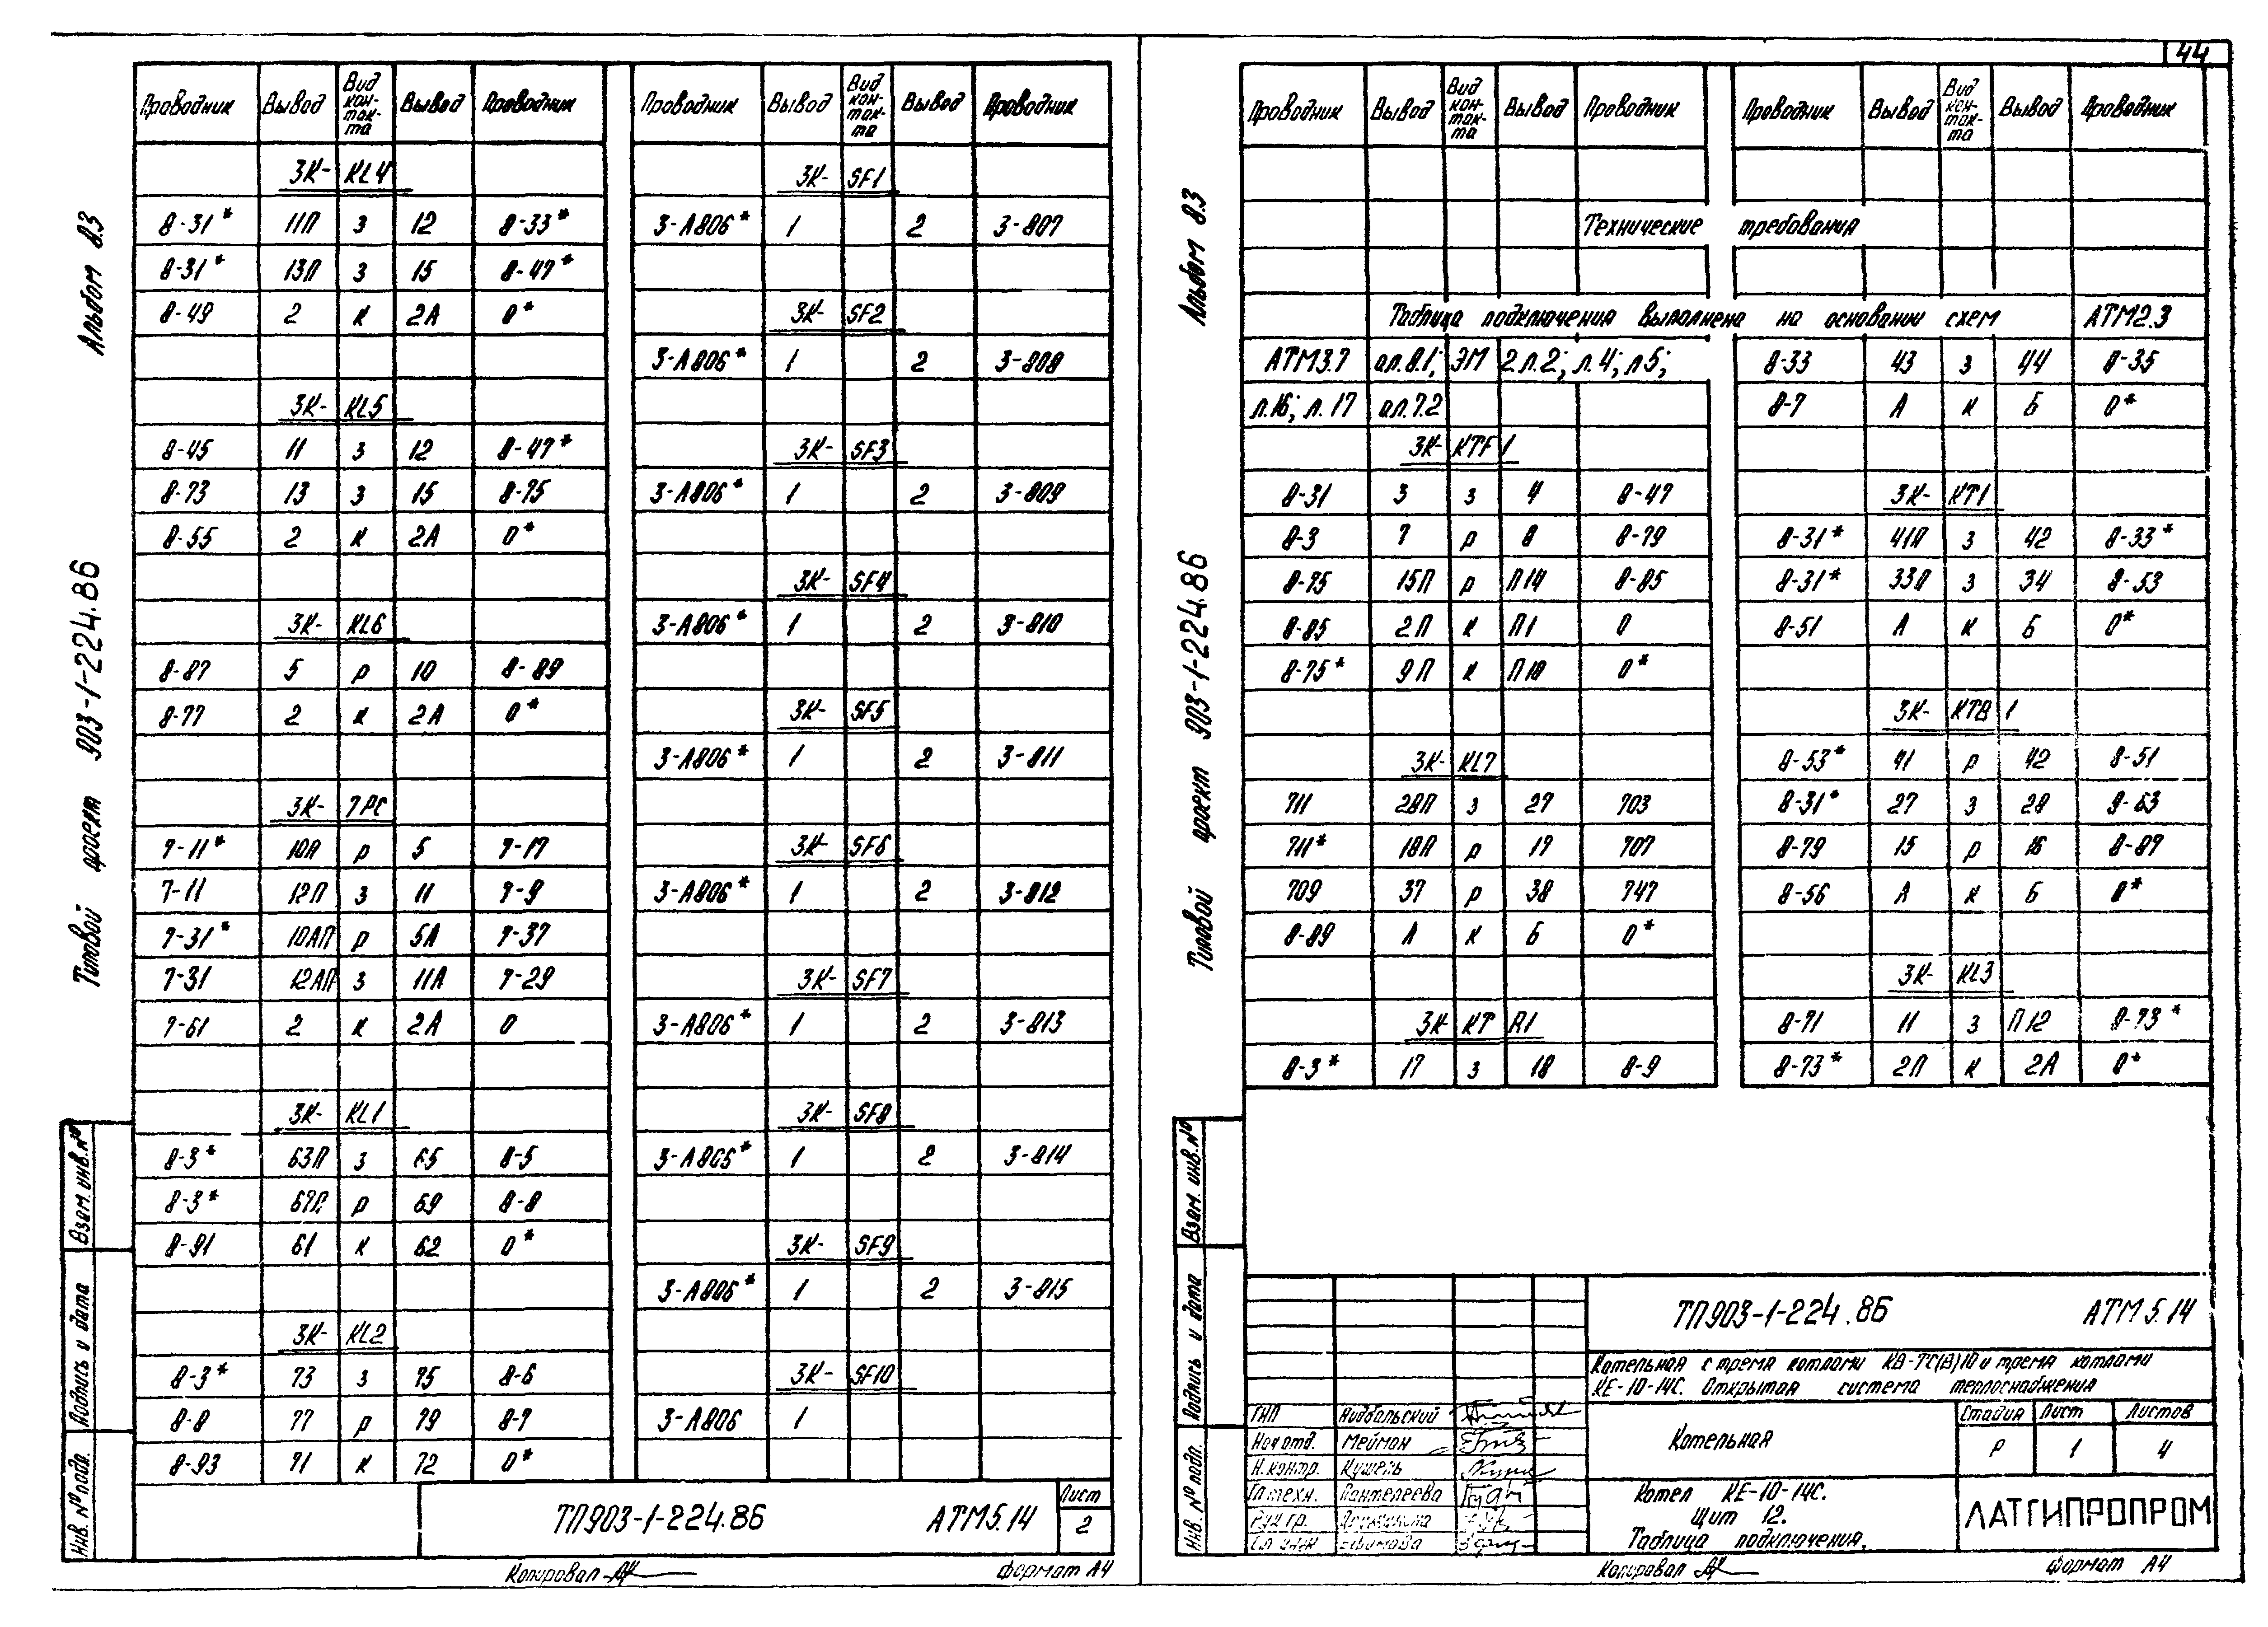 44
Проводник Вывод Вид кон-так-та Вывод Проводник Проводник Вывод Вид кон-так-та Вывод Проводник
3К- KL4 3К- SF1
8-31* 11П з 12 8-33* 3-А806* 1 2 3-807
8-31* 13П з 15 8-47*
8-49 2 к 2А 0* 3К- SF2
3-А806* 1 2 3-808
3К- KL5
8-45 11 з 12 8-47* 3К- SF3
8-73 13 з 15 8-75 3-А806* 1 2 3-809
8-55 2 к 2А 0*
3К- SF4
3К- KL6 3-А806* 1 2 3-810
8-87 5 р 10 8-89
8-77 2 к 2А 0* 3К- SF5
3-А806* 1 2 3-811
3К- 7РС
7-11* 10П р 5 7-17 3К- SF6
7-11 12П з 11 7-9 3-А806* 1 2 3-812
7-31* 10АП р 5А 7-37
7-31 12АП з 11А 7-29 3К- SF7
7-61 2 к 2А 0 3-А806* 1 2 3-813
3К- KL1 3К- SF8
8-3* 63П з 65 8-5 3-А805* 1 2 3-814
8-3* 67П р 69 8-8
8-91 61 к 62 0* 3К- SF9
3-А806* 1 2 3-815
3К- KL2
8-3* 73 з 75 8-6 3К- SF10
8-8 77 р 79 8-7 3-А806 1
8-93 71 к 72 0*
ТП903-1-224.86 АТМ5.14 Лист
2
Копировал
Формат А4
Альбом 8.3
Типовой проект 903-1-224.86
Взам. инв. №
Подпись и дата
Инв. № подл.
Проводник Вывод Вид кон-так-та Вывод Проводник Проводник Вывод Вид кон-так-та Вывод Проводник
Технические требования
Таблица подключения выполнена на основании схем АТМ2.3
АТМ3.7 ал.8.1; ЭМ 2 л.2; л.4; л5; 8-33 43 з 44 8-35
л.16; л. 17 ал.7.2 8-7 А к Б 0*
3К- KTF 1
8-31 3 з 4 8-47 3К- КТ1
8-3 7 р 8 8-79 8-31* 41П з 42 8-33*
8-75 15П р П14 8-85 8-31* 33П з 34 8-53
8-85 2П к П1 0 8-51 А к Б 0*
8-75* 9П к П10 0*
3К- КТВ 1
3К- KL7 8-53* 41 р 42 8-51
711 28П з 27 703 8-31* 27 з 28 8-63
711* 18П р 17 707 8-79 15 р 16 8-87
709 37 р 38 747 8-56 А к Б 0*
8-89 А к Б 0*
3К- KL3
3К КТ В1 8-71 11 з П12 8-73*
8-3* 17 з 18 8-9 8-73* 2П к 2А 0*
Альбом 8.3
Типовой проект 903-1-224.86
Взам. инв. №
Подпись и дата
Инв. № подл.
ТП903-1-224.86 АТМ5.14
Котельная с тремя котлами КВ-ТС(В)10 и тремя котлами
КЕ-10-14С. Открытая система теплоснабжения
ГИП Нидбальский
Нач отд. Мейман
Н. контр. Кушель
Гл техн. Пантелеева
Рук гр.
Ефимова
Котельная
Стадия Лист Листов
Р 1 4
Котел КЕ-10-14С.
Щит 12.
Таблица подключения.
ЛАТГИПРОПРОМ
Копировал
Формат А4